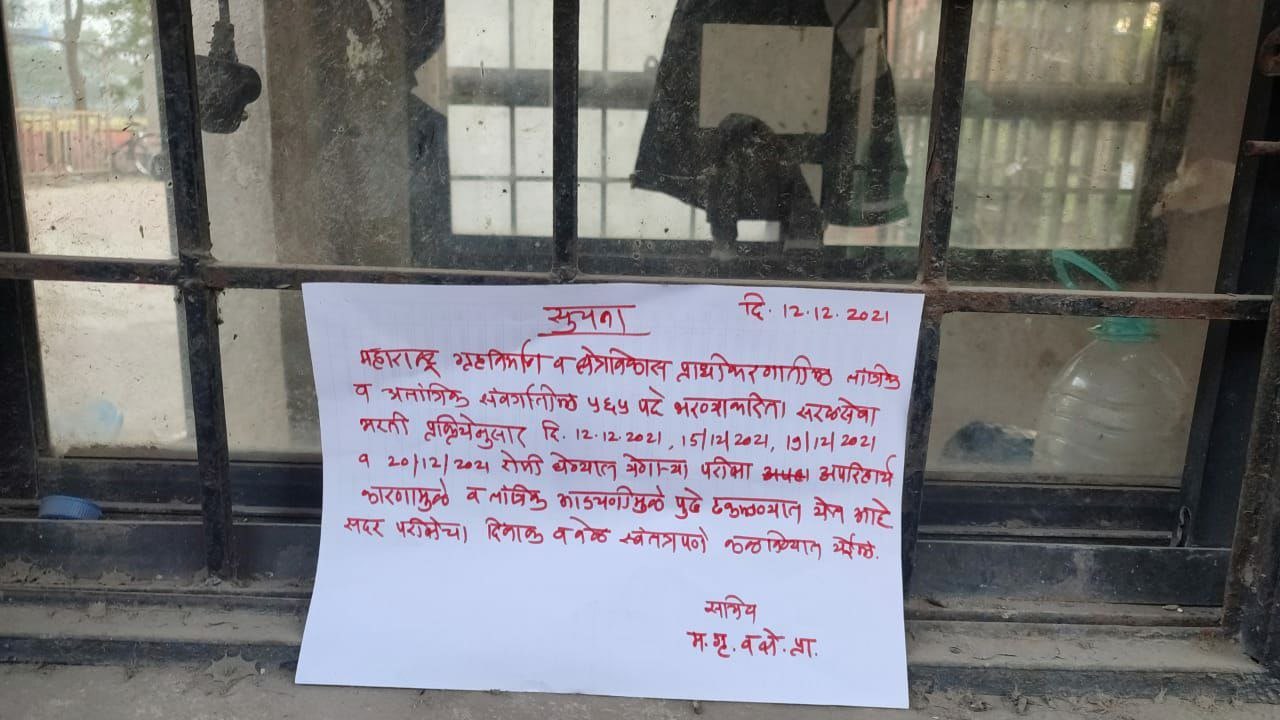 सुचना
दि. 12.12.2021
महाराष्ट्र गृहनिर्माण व क्षेत्रविकास प्राधीकरणातील तांत्रिक
व अतांत्रिक संवर्गातील ५६५ पदे भरण्याकरिता सरळसेवा
भरती प्रक्रियेनुसार दि. 12.12.2021, 15/12/2021, 19/12/2021
व 20/12/2021 रोजी घेण्यात येणाऱ्या परीक्षा अपरिहार्य
कारणामुळे व तांत्रिक अडचणीमुळे पुढे ढकलण्यात येत आहे
सदर परीक्षेचा दिनांक व वेळ स्वंतत्रपणे कळविण्यात येईल.
सचिव
म.गृ. व क्षे. प्रा.